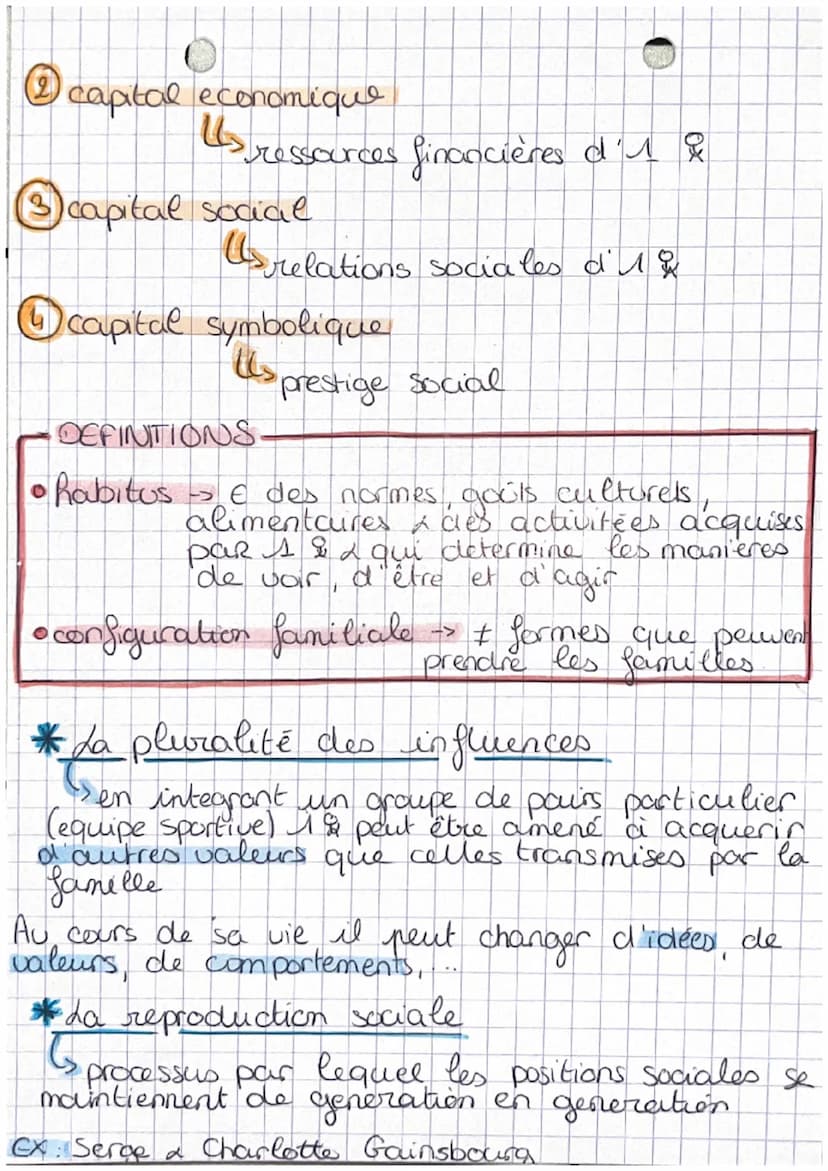 ② capital economique
↳ ressources financières d'1 웃
③ capital social
↳ relations sociales d'1 웃
④ capital symbolique
↳ prestige social
DEFINITIONS
• habitus → € des normes, goûts culturels,
alimentaires & des activitées acquises
par 1 웃 & qui determine les manières
de voir, d'être et d'agir
• configuration familiale → ≠ formes que peuvent
prendre les familles
* La pluralité des influences
↳ en integrant un groupe de pairs particulier
(equipe sportive) 1 웃 peut être amené à acquerir
d'autres valeurs que celles transmises par la
famille
Au cours de sa vie il peut changer d'idées, de
valeurs, de comportements,...
* La reproduction sociale
↳ processus par lequel les positions sociales se
maintiennent de generation en generation
Ex: Serge & Charlotte Gainsbourg